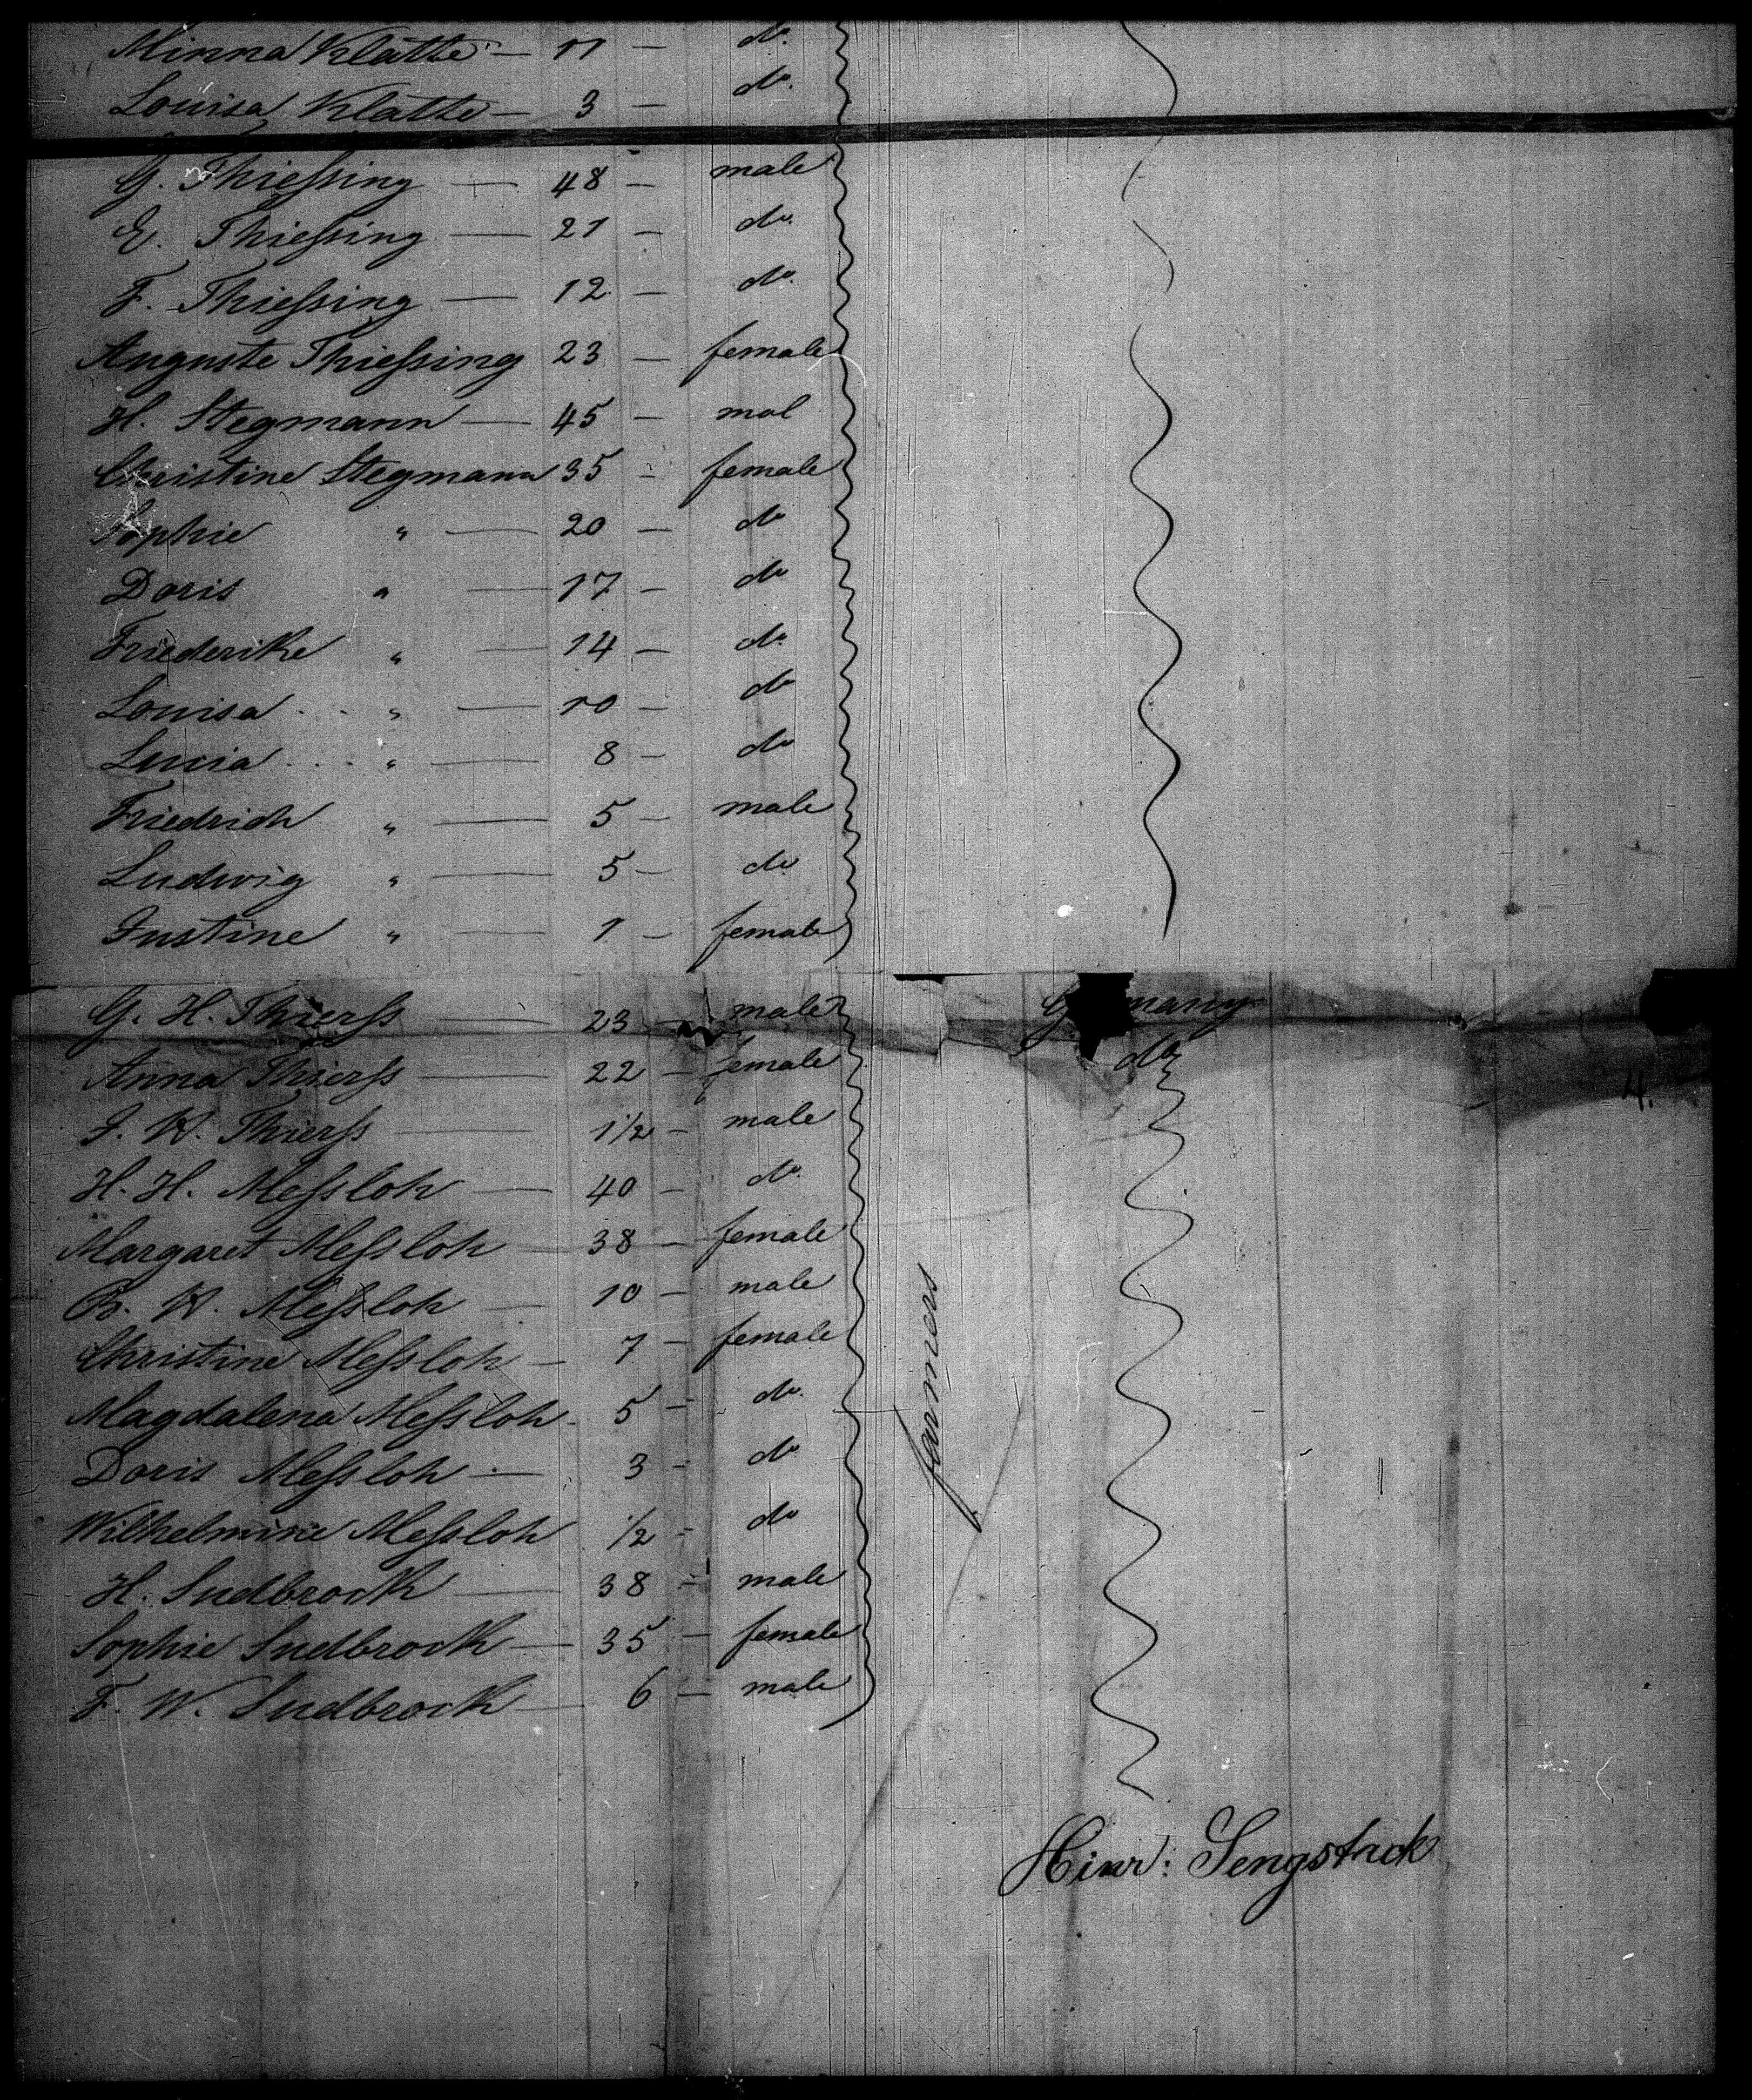 Minna Klatte — 11 — do.
Louisa Klatte — 3 — do.
G. Thieſsing — 48 — male
E. Thieſsing — 21 — do.
F. Thieſsing — 12 — do.
Auguste Thieſsing 23 — female
H. Stegmann — 45 — mal
Christine Stegmann 35 - female
Sophie " — 20 — do
Doris " — 17 — do
Friederike " — 14 — do.
Louisa . . " — 10 — do
Lucia . . . " — 8 — do
Friedrich " — 5 — male
Ludwig " — 5 — do
Justine " — 1 — female
G. H. Thierſs — 23 — male Germany
Anna Thierſs — 22 — female do
4.
J. H. Thierſs — 1 1/2 — male
H. H. Meſsloh — 40 — do.
Margaret Meſsloh — 38 — female
B. H. Meſsloh — 10 — male
Christine Meſsloh — 7 — female
Magdalena Meſsloh - 5 — do.
Doris Meſsloh — 3 - do
Wilhelmine Meſsloh 1/2 - do
H. Sudbrock — 38 - male
Sophie Sudbrock — 35 - female
F. W. Sudbrock — 6 — male
farmers
Hinr: Sengstack